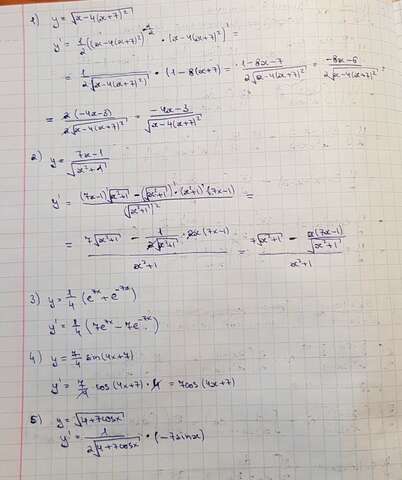 1) y = √(x-4(x+7)²)
y' = 1/2 ((x-4(x+7)²)^(-1/2) · (x-4(x+7)²)' =
= 1/(2√(x-4(x+7)²)) · (1-8(x+7) = (1-8x-7)/(2√(x-4(x+7)²)) = (-8x-6)/(2√(x-4(x+7)²)) =
= 2(-4x-3)/(2√(x-4(x+7)²)) = (-4x-3)/√(x-4(x+7)²)
2) y = (7x-1)/√(x²+1)
y' = ((7x-1)'√(x²+1) - (√(x²+1))'·(x²+1)'·(7x-1))/(√(x²+1))² =
= (7√(x²+1) - 1/(2√(x²+1)) · 2x(7x-1))/(x²+1) = (7√(x²+1) - x(7x-1)/√(x²+1))/(x²+1)
3) y = 1/4 (e^(7x) + e^(-7x))
y' = 1/4 (7e^(7x) - 7e^(-7x))
4) y = 7/4 sin(4x+7)
y' = 7/4 cos(4x+7) · 4 = 7cos(4x+7)
5) y = √(4+7cosx)
y' = 1/(2√(4+7cosx)) · (-7sinx)